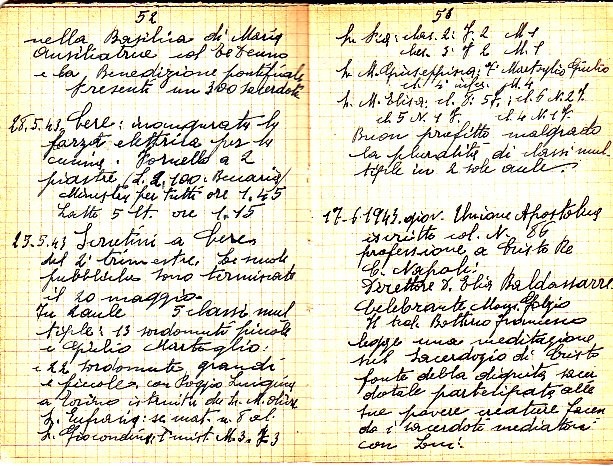 52
nella Basilica di Maria
Ausiliatrice col Te Deum
e la Benedizione pontificale
presenti un 300 sacerdoti
28.5.43 Cere: inaugurata la
forza elettrica per la
cucina. Fornello a 2
piastre L. 2.100:
per tutti ore 1.45
Latte 5 lt. ore 1.15
29.5.43 Scrutini a Ceres
del 2° trimestre. Le scuole
pubbliche sono terminate
il 20 maggio.
In 2 aule 5 classi mul
tiple: 13 sordomute piccole
e Giulio Martoglio:
e 22 sordomute grandi
e piccole con Poggio Luigina
a Torino istruite da Sr. M. Elisa
Sr. Eufrasia: se mat. n. 8 al.
Sr. Giocondina: 1ª mist. M. 3. F. 3
53
Sr. Pia: clas. 2: F. 2 M 1
clas. 3: F. 2 M. 1
Sr. M. Giuseppina: F. Martoglio Giulio
M. 4
Sr. M. Elisa: cl. F. 5 F.; cl. 6 N. 2 F.
cl. 5 N. 1 F. cl. 4 N. 1 F.
Buon profitto malgrado
la pluralità di classi mul
tiple in 2 sole aule.
17-6-1943. giov. Unione Apostolica
iscritto col N. 86
professione a Cristo Re
C. Napoli.
Direttore D. Elia Baldassarre
Celebrante Mons.
Il teol. Bottino Francesco
legge una meditazione
sul Sacerdozio di Cristo
fonte della dignità sacer
dotale partecipata alle
sue povere creature facen
do i sacerdoti mediatori
con Lui.